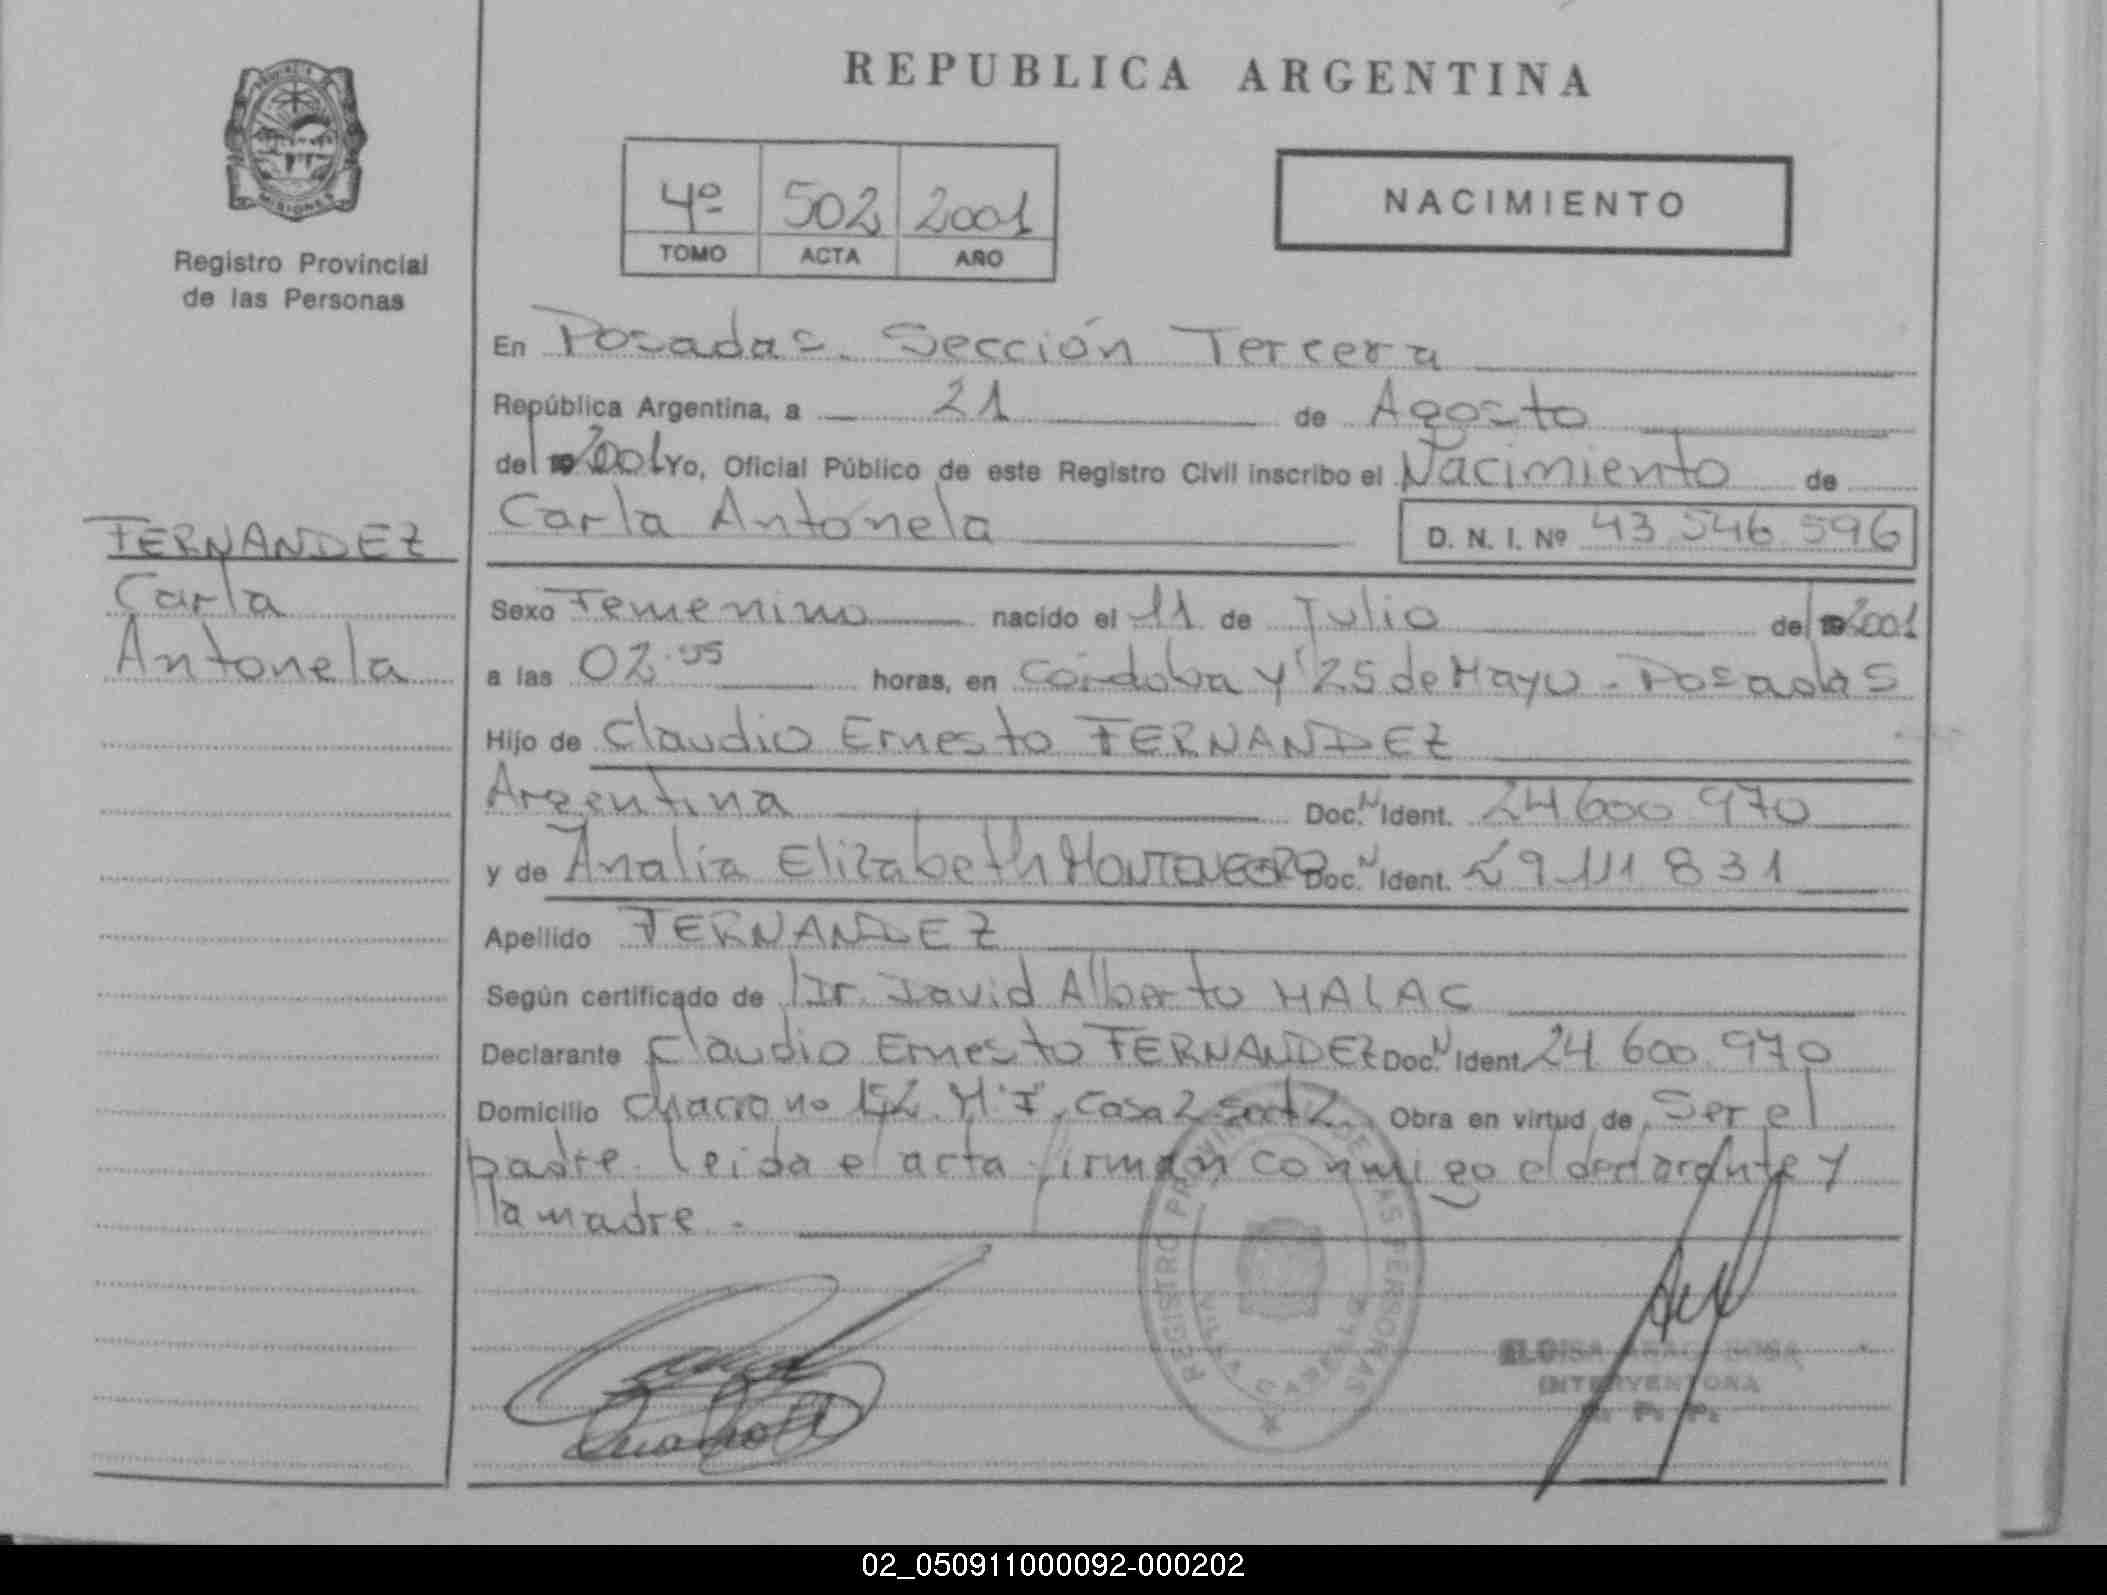 REPUBLICA ARGENTINA
PROVINCIA
MISIONES
Registro Provincial
de las Personas
4º 502 2001
TOMO ACTA AÑO
NACIMIENTO
En Posadas. Sección Tercera
República Argentina, a 21 de Agosto
del 2001 Yo, Oficial Público de este Registro Civil inscribo el Nacimiento de
Carla Antonela D. N. I. Nº 43 546 596
FERNANDEZ
Carla
Antonela
Sexo Femenino nacido el 11 de Julio del 2001
a las 02.55 horas, en Córdoba y 25 de Mayo - Posadas
Hijo de Claudio Ernesto FERNANDEZ
Argentina Doc. N Ident. 24 600 970
y de Analia Elizabeth MONTENEGRO Doc. N Ident. 29 111 831
Apellido FERNANDEZ
Según certificado de Dr. David Alberto HALAC
Declarante Claudio Ernesto FERNANDEZ Doc. N Ident. 24 600.970
Domicilio Casa 2 Obra en virtud de Ser el
padre. leida el acta firman conmigo el declarante y
la madre.
REGISTRO PROVINCIAL DE LAS PERSONAS
VILLA CABELLO
ELOISA SOSA
INTERVENTORA
R. P. P.
02_050911000092-000202